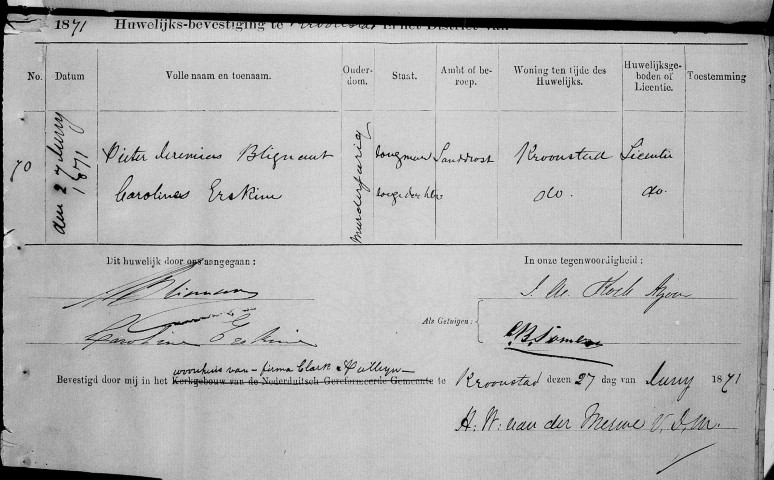 1871 Huwelijks-bevestiging te Kroonstad in het District van
No. Datum Volle naam en toenaam. Ouderdom. Staat. Ambt of beroep. Woning ten tijde des Huwelijks. Huwelijksgeboden of Licentie. Toestemming
70 den 27 Juny 1871 Pieter Jeremias Blignaut Minderjarig Jongman Landdrost Kroonstad Licentie
Carolina Erskine Jonge dochter do. do.
Dit huwelijk door ons aangegaan : In onze tegenwoordigheid :
Blignaut
Als Getuigen :
Caroline Erskine
woonhuis van firma Clark &
Bevestigd door mij in het Kerkgebouw van de Nederduitsch Gereformeerde Gemeente te Kroonstad dezen 27 dag van Juny 1871
A. W. van der Merwe V. D. M.